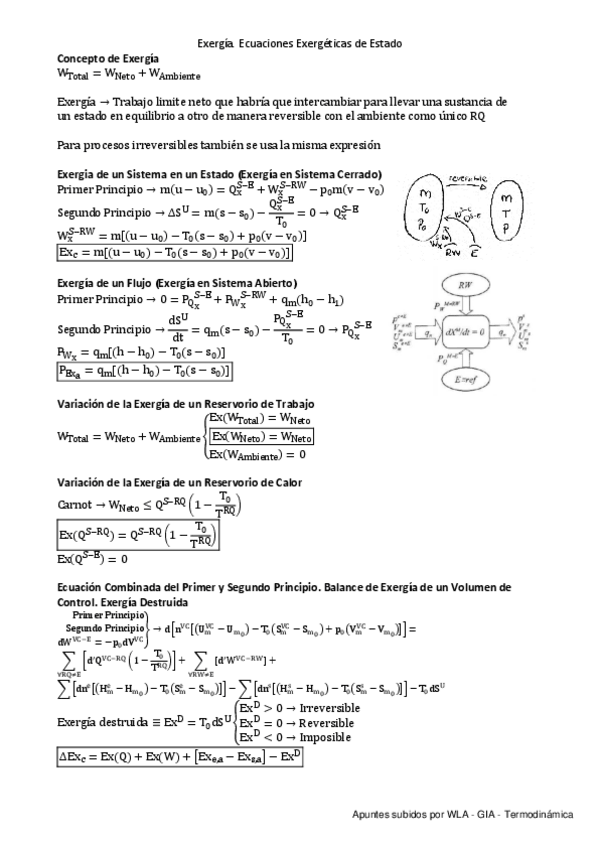 Exergía. Ecuaciones Exergéticas de Estado
Concepto de Exergía
W_Total = W_Neto + W_Ambiente
Exergía → Trabajo limite neto que habría que intercambiar para llevar una sustancia de
un estado en equilibrio a otro de manera reversible con el ambiente como único RQ
Para procesos irreversibles también se usa la misma expresión
Exergía de un Sistema en un Estado (Exergía en Sistema Cerrado)
Primer Principio → m(u − u₀) = Q_x^{S−E} + W_x^{S−RW} − p₀m(v − v₀)
Segundo Principio → ΔS^U = m(s − s₀) − Q_x^{S−E}/T₀ = 0 → Q_x^{S−E}
W_x^{S−RW} = m[(u − u₀) − T₀(s − s₀) + p₀(v − v₀)]
Ex_c = m[(u − u₀) − T₀(s − s₀) + p₀(v − v₀)]
reversible
m
T₀
p₀
m
T
p
RW
E
Exergía de un Flujo (Exergía en Sistema Abierto)
Primer Principio → 0 = P_{Q_x}^{S−E} + P_{W_x}^{S−RW} + q_m(h₀ − h₁)
Segundo Principio → dS^U/dt = q_m(s − s₀) − P_{Q_x}^{S−E}/T₀ = 0 → P_{Q_x}^{S−E}
P_{W_x} = q_m[(h − h₀) − T₀(s − s₀)]
P_{Ex_a} = q_m[(h − h₀) − T₀(s − s₀)]
RW
dX^M/dt = 0
E≡ref
Variación de la Exergía de un Reservorio de Trabajo
W_Total = W_Neto + W_Ambiente { Ex(W_Total) = W_Neto
Ex(W_Neto) = W_Neto
Ex(W_Ambiente) = 0
Variación de la Exergía de un Reservorio de Calor
Carnot → W_Neto ≤ Q^{S−RQ} (1 − T₀/T^{RQ})
Ex(Q^{S−RQ}) = Q^{S−RQ} (1 − T₀/T^{RQ})
Ex(Q^{S−E}) = 0
Ecuación Combinada del Primer y Segundo Principio. Balance de Exergía de un Volumen de
Control. Exergía Destruida
Primer Principio
Segundo Principio } → d[n^{VC}[(U_m^{VC} − U_{m₀}) − T₀(S_m^{VC} − S_{m₀}) + p₀(V_m^{VC} − V_{m₀})]] =
dW^{VC−E} = −p₀dV^{VC}
∑_{∀RQ≠E} [d'Q^{VC−RQ} (1 − T₀/T^{RQ})] + ∑_{∀RW≠E} [d'W^{VC−RW}] +
∑[dn^e[(H_m^e − H_{m₀}) − T₀(S_m^e − S_{m₀})]] − ∑[dn^s[(H_m^s − H_{m₀}) − T₀(S_m^s − S_{m₀})]] − T₀dS^U
Exergía destruida ≡ Ex^D = T₀dS^U { Ex^D > 0 → Irreversible
Ex^D = 0 → Reversible
Ex^D < 0 → Imposible
ΔEx_c = Ex(Q) + Ex(W) + [Ex_{e,a} − Ex_{s,a}] − Ex^D
Apuntes subidos por WLA - GIA - Termodinámica